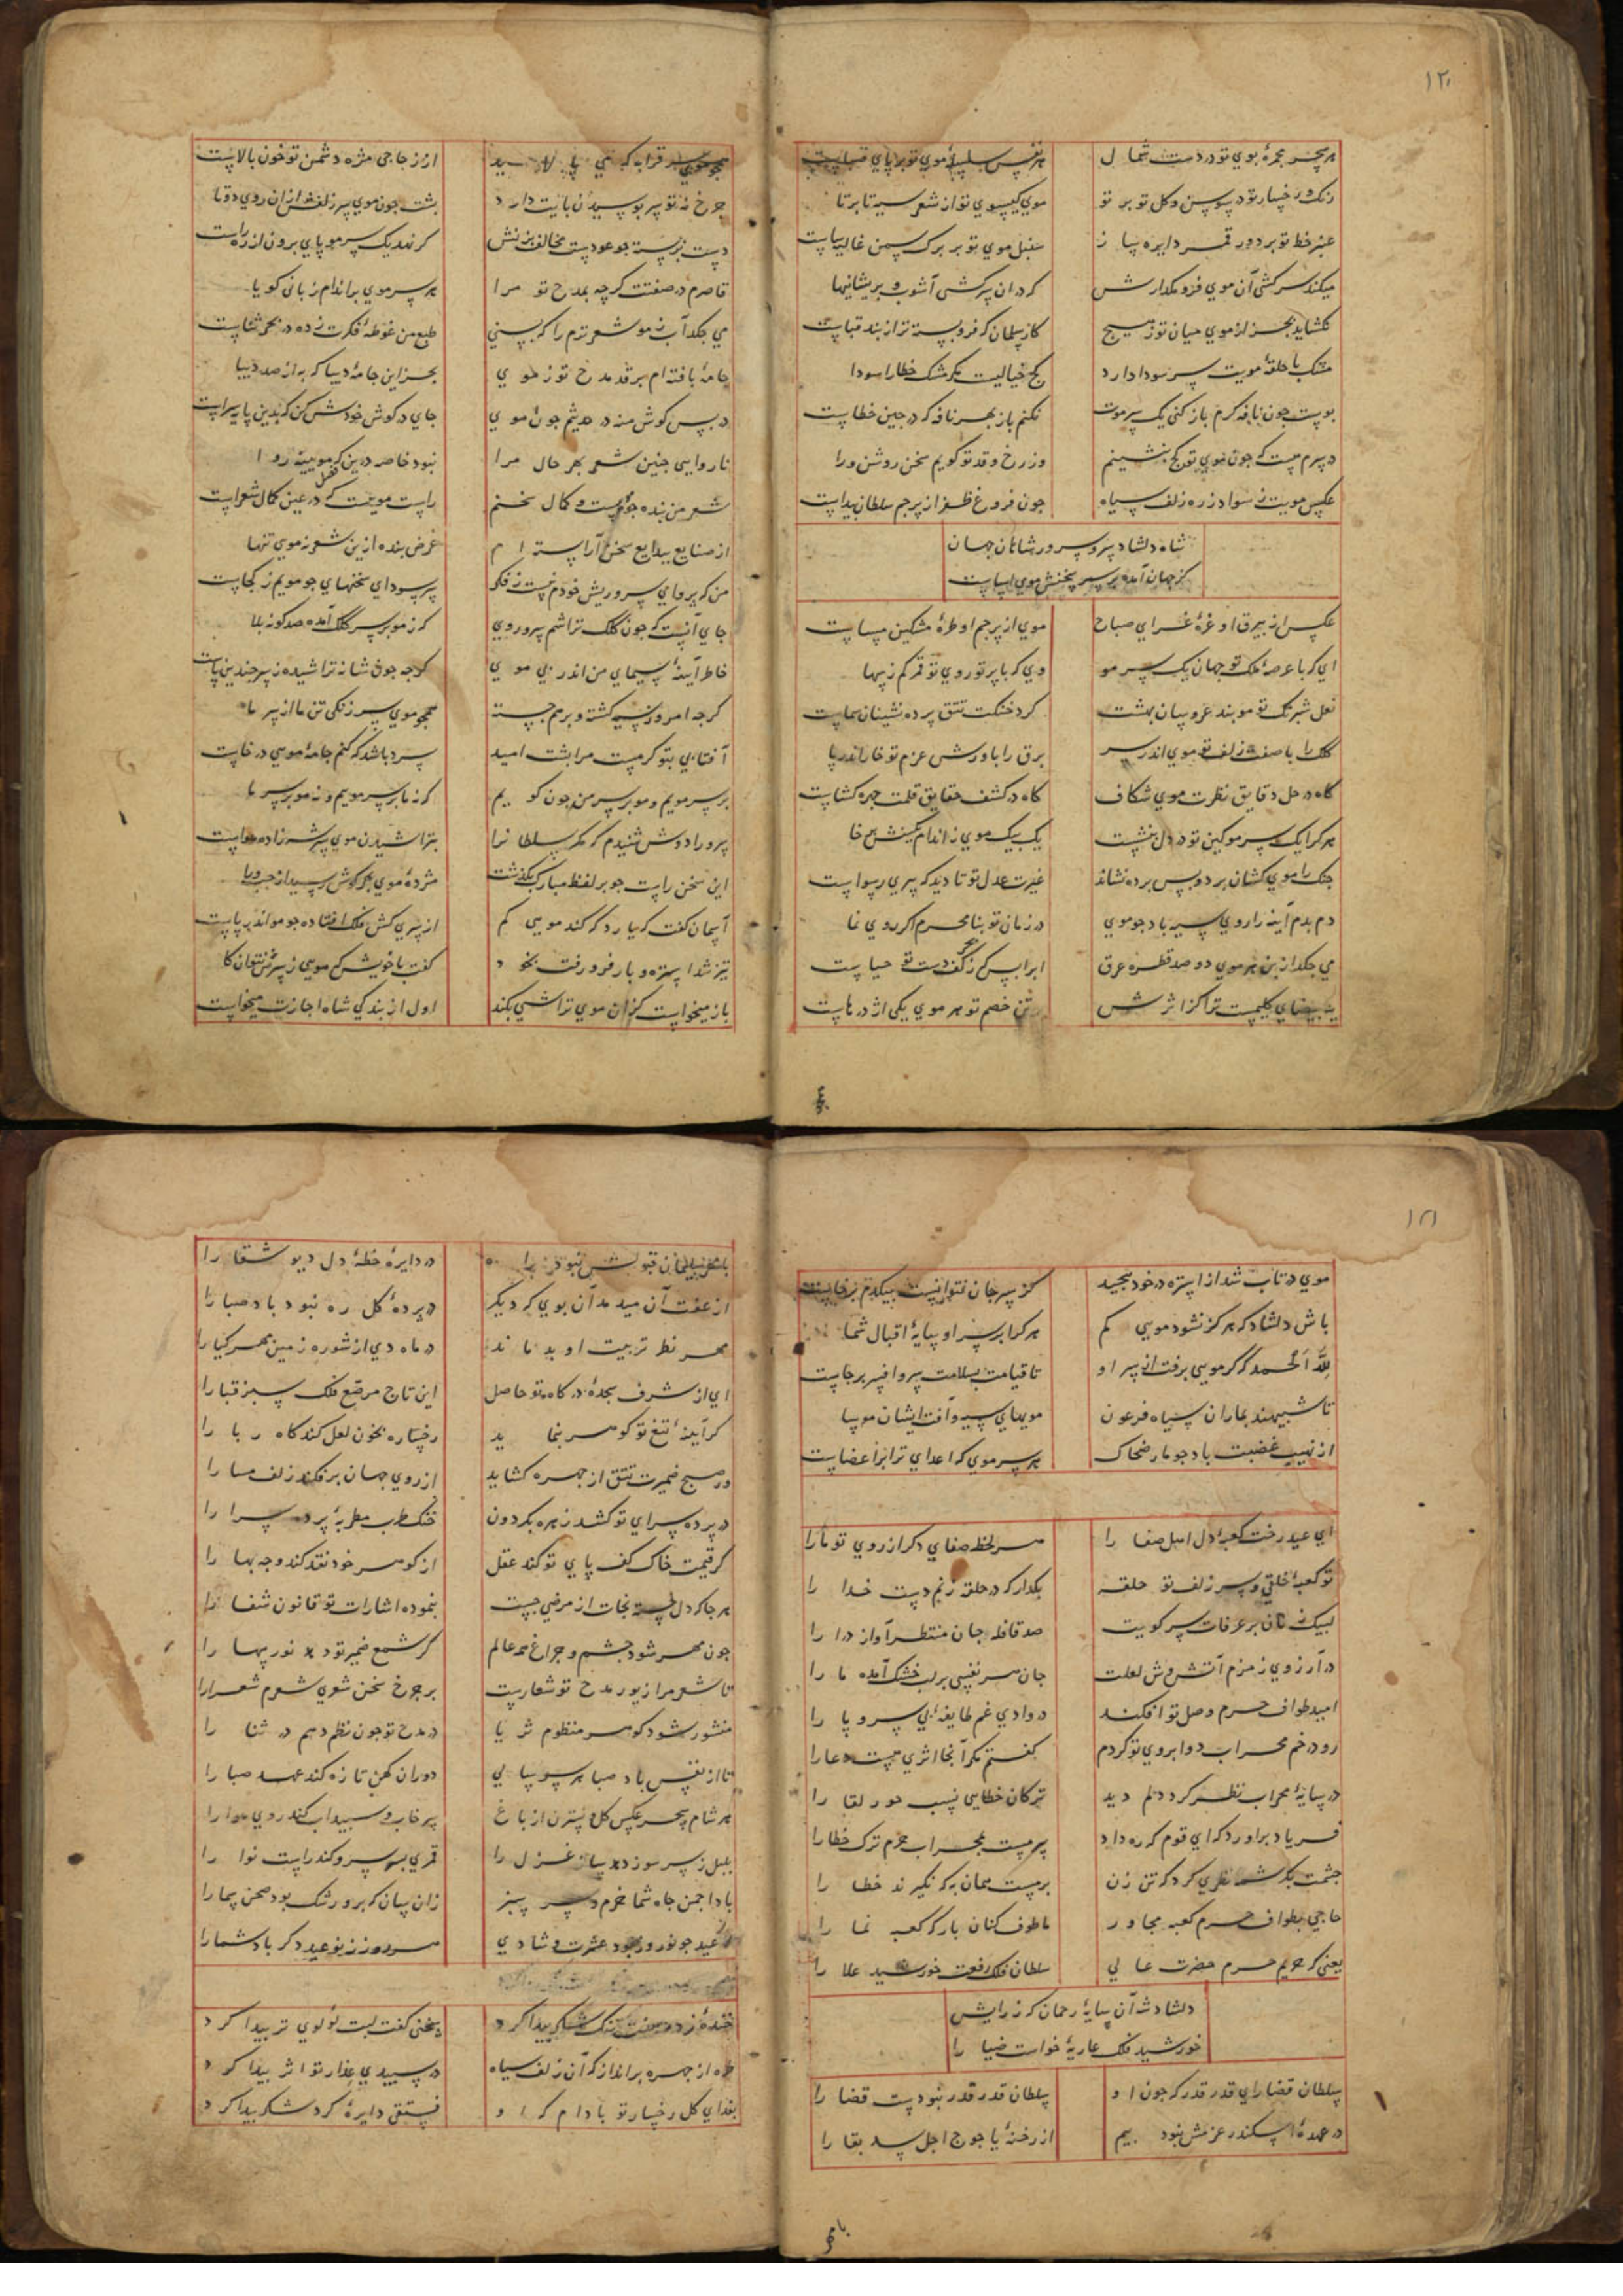 ۱۲۰
هر سحر مجمرهٔ بوی تو در دست شمال
هر نفس سلسلهٔ موی تو بر پای صباست
رنک رخسار تو در سوسن و کل تو بر تو
موی کیسوی تو از شعر سیه تا بر تا
عنبر خط تو بر دور قمر دایره ساز
سنبل موی تو بر برک سمن غالیه ساست
میکند سرکشی آن موی فرو مکذارش
که در ان سرکشی آشوب و پریشانیها
نکشاید بجز از موی میان تو ز هیچ
کار سلمان که فروبسته تر از بند قباست
مشک با حلقهٔ مویت سر سودا دارد
کج خیالیست مکر مشک خطا را سودا
بوست چون نافه کرم باز کنی یک سر موت
نکنم باز بهر نافه که در چین خطاست
در سرم هست که چون موی تو کج بنشینم
وز رخ و قد تو کویم سخن روشن و را
عکس مویت ز سواد زره زلف سیاه
چون فروغ ظفر از پرچم سلطان پیداست
شاه دلشاد سر و سرور شاهان جهان
کز جهان آمده بر سر سخنش موی اساست
عکسی از بیرق او غرهٔ غرای صباح
مویی از پرچم او طرهٔ مشکین مساست
ای که با عرصهٔ ملک تو جهان یک سر مو
وی که با پرتو روی تو قمر کم ز سها
نعل شبرنک تو موبند عروسان بهشت
کرد خنکت تتق پرده نشینان سماست
کلک را با صفت زلف تو موی اندر سر
برق را با روش عزم تو خار اندر پا
کاه در حل دقایق نظرت موی شکاف
کاه در کشف حقایق قلمت چهره کشاست
هر کرا یک سر مو کین تو در دل بنشست
یک بیک موی ز اندام کینش خا
چنک را موی کشان برد و بس پرده نشاند
غیرت عدل تو تا دید که پیری رسواست
دم بدم آینه را روی سیه باد چو موی
در زمان تو بنا محرم اکر روی نما
می چکد از بن هر موی دو صد قطره عرق
ابر را بس که ز کف دست تو حیاست
ید بیضای کلیمست ترا کز اثرش
بتن خصم تو هر موی یکی اژدرهاست
همچو موی سر قرابه که می پالاید
از زجاجی مژه دشمن تو خون بالاست
چرخ نه تو سر بوسیدن پایت دارد
پشت چون موی سر زلف از ان روی دوتا
دست بر بسته چو عودست مخالف بزنش
کر نهد یک سر مو پای برون از ره راست
قاصرم در صفتت کرچه بمدح تو مرا
هر سر موی بر اندام زبانی کویا
می چکد آب ز مو شعر ترم را که بسی
طبع من غوطهٔ فکرت زده در بحر ثناست
جامهٔ بافته ام بر قد مدح تو ز موی
بجز این جامهٔ دیبا که به از صد دیبا
در پس کوش منه در چشم چون موی
جای در کوش خودش کن که بدین پایه سزاست
ناروایی چنین شعر بهر حال مرا
نبود خاصه درین فصل که موییه روا
شعر من بنده چو مویست و کمال سخنم
راست موییست که در عین کمال شعراست
از صنایع ببدایع سخن آراسته ام
غرض بنده ازین شعر نه موی تنها
من که پروای سر و ریش خودم نیست ز فکر
سر سودای سخنهای چو مویم ز کجاست
جای آنست که چون کلک تراشم سر و روی
که ز مو بر سر کلک آمده صد کونه بلا
خاطر آینه سیمای من اندر پی موی
کرچه چون شانه تراشیده ز سر چندین پاست
کرچه امروز سیه کشته و بر هم جسته
همچو موی سر زنکی تن ما از سر ما
آفتابی بتو کرمست مرا پشت امید
سرد باشد که کنم جامهٔ مویی درخواست
بر سر مویم و مو بر سر من چون کویم
که نه ما بر سر موییم و نه مو بر سر ما
سرو را دوش شنیدم که مکر سلطانرا
بتراشیدن موی سر شه زاده هواست
این سخن راست چو بر لفظ مبارک بکذشت
مژدهٔ موی بهر کوش رسید از چپ و را
آسمان کفت که یارد که کند مویی کم
از سری کش فلک افتاده چو مو اندر پاست
تیز شد استره و بار فرو رفت بخود
کفت با خویش که مویی ز سرش نتوان کا
باز میخواست کزان موی تراشی بکند
اول از بندکی شاه اجازت میخواست
۱۲۱
موی در تاب شد از استره در خود پیچید
کز سر جان نتوانست بیکدم برخاست
باش دلشاد که هرکز نشود مویی کم
هر کرا بر سر او سایهٔ اقبال شما
لله الحمد که کر مویی برفت از سر او
تا قیامت بسلامت سر و افسر برجاست
تا شبیهند بماران سیاه فرعون
مویهای سیه و آفت ایشان موسا
از نهیب غضبت باد چو مار ضحاک
هر سر موی که اعدای ترا بر اعضاست
ای عید رخت کعبهٔ دل اهل صفا را
هر لحظه صفای دکر از روی تو ما را
تو کعبهٔ خلقی و سر زلف تو حلقه
بکذار که در حلقه زنم دست خدا را
لبیک زنان بر عرفات سر کویت
صد قافله جان منتظر آواز درا را
در آرزوی زمزم آتش وش لعلت
جان هر نفسی بر لب خشک آمده ما را
امید طواف حرم وصل تو افکند
در وادی غم طایفهٔ بی سر و پا را
رو در خم محراب دو ابروی تو کردم
کفتم مکر آنجا اثری هست دعا را
در سایهٔ محراب نظر کرد دلم دید
ترکان خطایی نسب حور لقا را
فریاد براورد که ای قوم که ره داد
سرمست بمحراب حرم ترک خطا را
چشمت بکرشمه نظری کرد که تن زن
بر مست همان به که نکیرند خطا را
حاجی بطواف حرم کعبه مجاور
ما طوف کنان بارکه کعبه نما را
یعنی که حریم حرم حضرت عالی
سلطان فلک رفعت خورشید علا را
دلشاد شه آن سایهٔ رحمان که ز رایش
خورشید فلک عاریه خواست ضیا را
سلطان قضا رای قدر قدر که چون او
سلطان قدر قدر نبودست قضا را
در عهدهٔ اسکندر عزمش نبود بیم
از رخنهٔ یاجوج اجل سد بقا را
با مهر سلیمان قبولش نبود ره
در دایرهٔ خطهٔ دل دیو شقا را
از عفت آن میدمد آن بوی که دیکر
در پردهٔ کل ره نبود باد صبا را
مهر نظر تربیت او بدماند
در ماه دی از شوره زمین مهر کیا را
ای از شرف سجدهٔ درکاه تو حاصل
این تاج مرصع فلک سبز قبا را
کر آینهٔ تیغ تو کوهر بنماید
رخساره بخون لعل کند کاه ربا را
ور صبح ضمیرت تتق از چهره کشاید
از روی جهان برفکند زلف مسا را
در پرده سرای تو کشد زهره بکردون
چنک طرب مطربهٔ پرده سرا را
کر قیمت خاک کف پای تو کند عقل
از کوهر خود نقد کند وجه بها را
هر جا که دل خسته نجات از مرضی جست
بنموده اشارات تو قانون شفا را
چون مهر شود چشم و چراغ همه عالم
کر شمع ضمیر تو دهد نور سها را
تا شعر مرا زیور مدح تو شعارست
بر چرخ سخن شعری شعرم شعرا را
منثور شود کوهر منظوم ثریا
در مدح تو چون نظم دهم در ثنا را
تا از نفس باد صبا هر سو سالی
دوران کهن تازه کند عهد صبا را
هر شام و سحر عکس کل و نسترن از باغ
سرخاب و سپیداب کند روی هوا را
بلبل ز سر سوز دهد ساز غزل را
قمری بسر سرو کند راست نوا را
بادا چمن جاه شما خرم و سر سبز
زان سان که برو رشک بود صحن سما را
از عید چو نوروز بود عشرت و شادی
هر روز ز نو عید دکر باد شما را
خندهٔ زد دهنت تنک شکر پیدا کرد
سخنی کفت لبت لؤلوی تر پیدا کرد
طره از چهره برانداز که آن زلف سیاه
در سپیدی عذار تو اثر پیدا کرد
بفدای کل رخسار تو بادام که او
فستقی دایرهٔ کرد شکر پیدا کرد